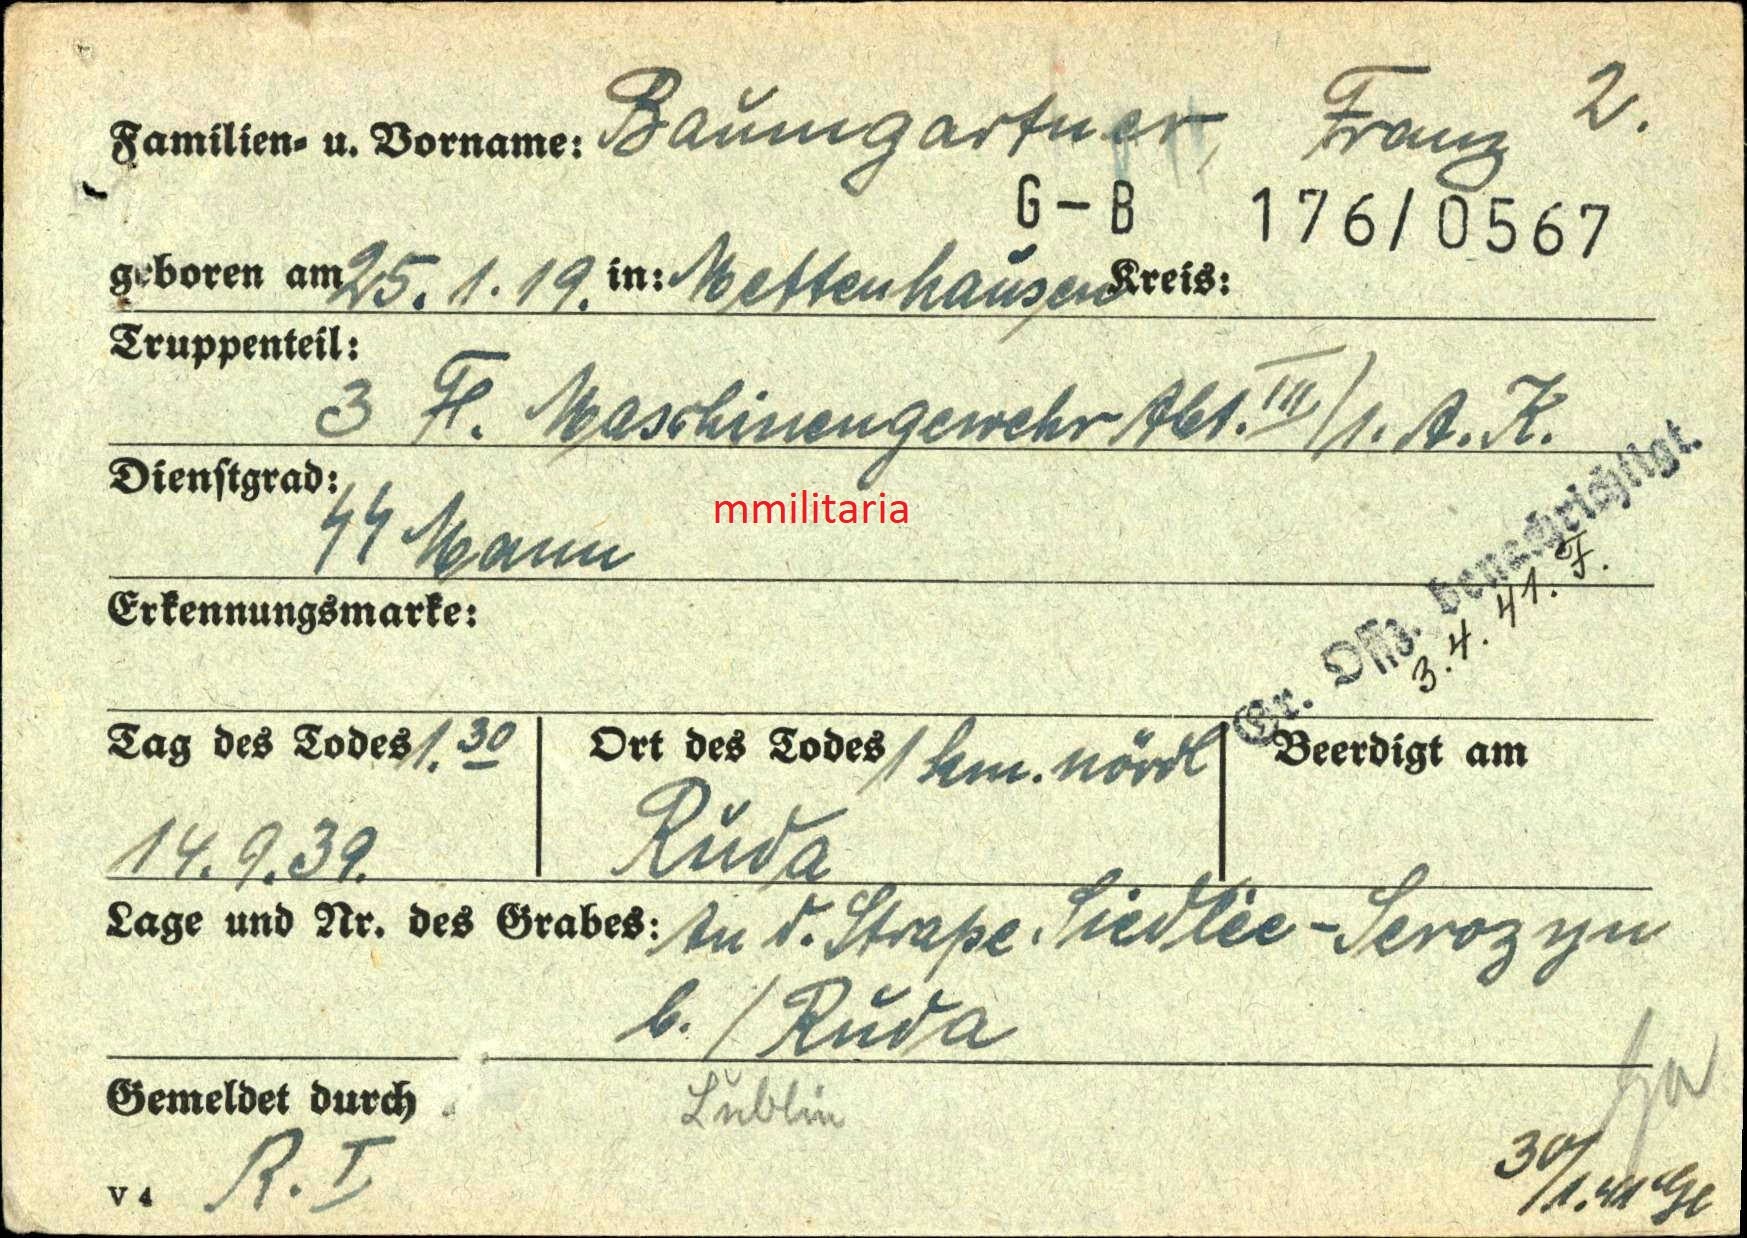 Familien- u. Vorname: Baumgartner, Franz 2.
G-B 176/0567
geboren am 25. 1. 19. in: Mettenhausen Kreis:
Truppenteil:
3 Fl. Maschinengewehr Abt. III/1. A. K.
Dienstgrad:
SS Mann
mmilitaria
Gr. Offz. benachrichtigt.
3. 4. 41. F.
Erkennungsmarke:
Tag des Todes 1.30
14. 9. 39.
Ort des Todes 1 km. nördl
Ruda
Beerdigt am
Lage und Nr. des Grabes: An d. Straße Siedlce-Seroczyn
b. / Ruda
Gemeldet durch
Lublin
R. I
V 4
30/1.41 Ge